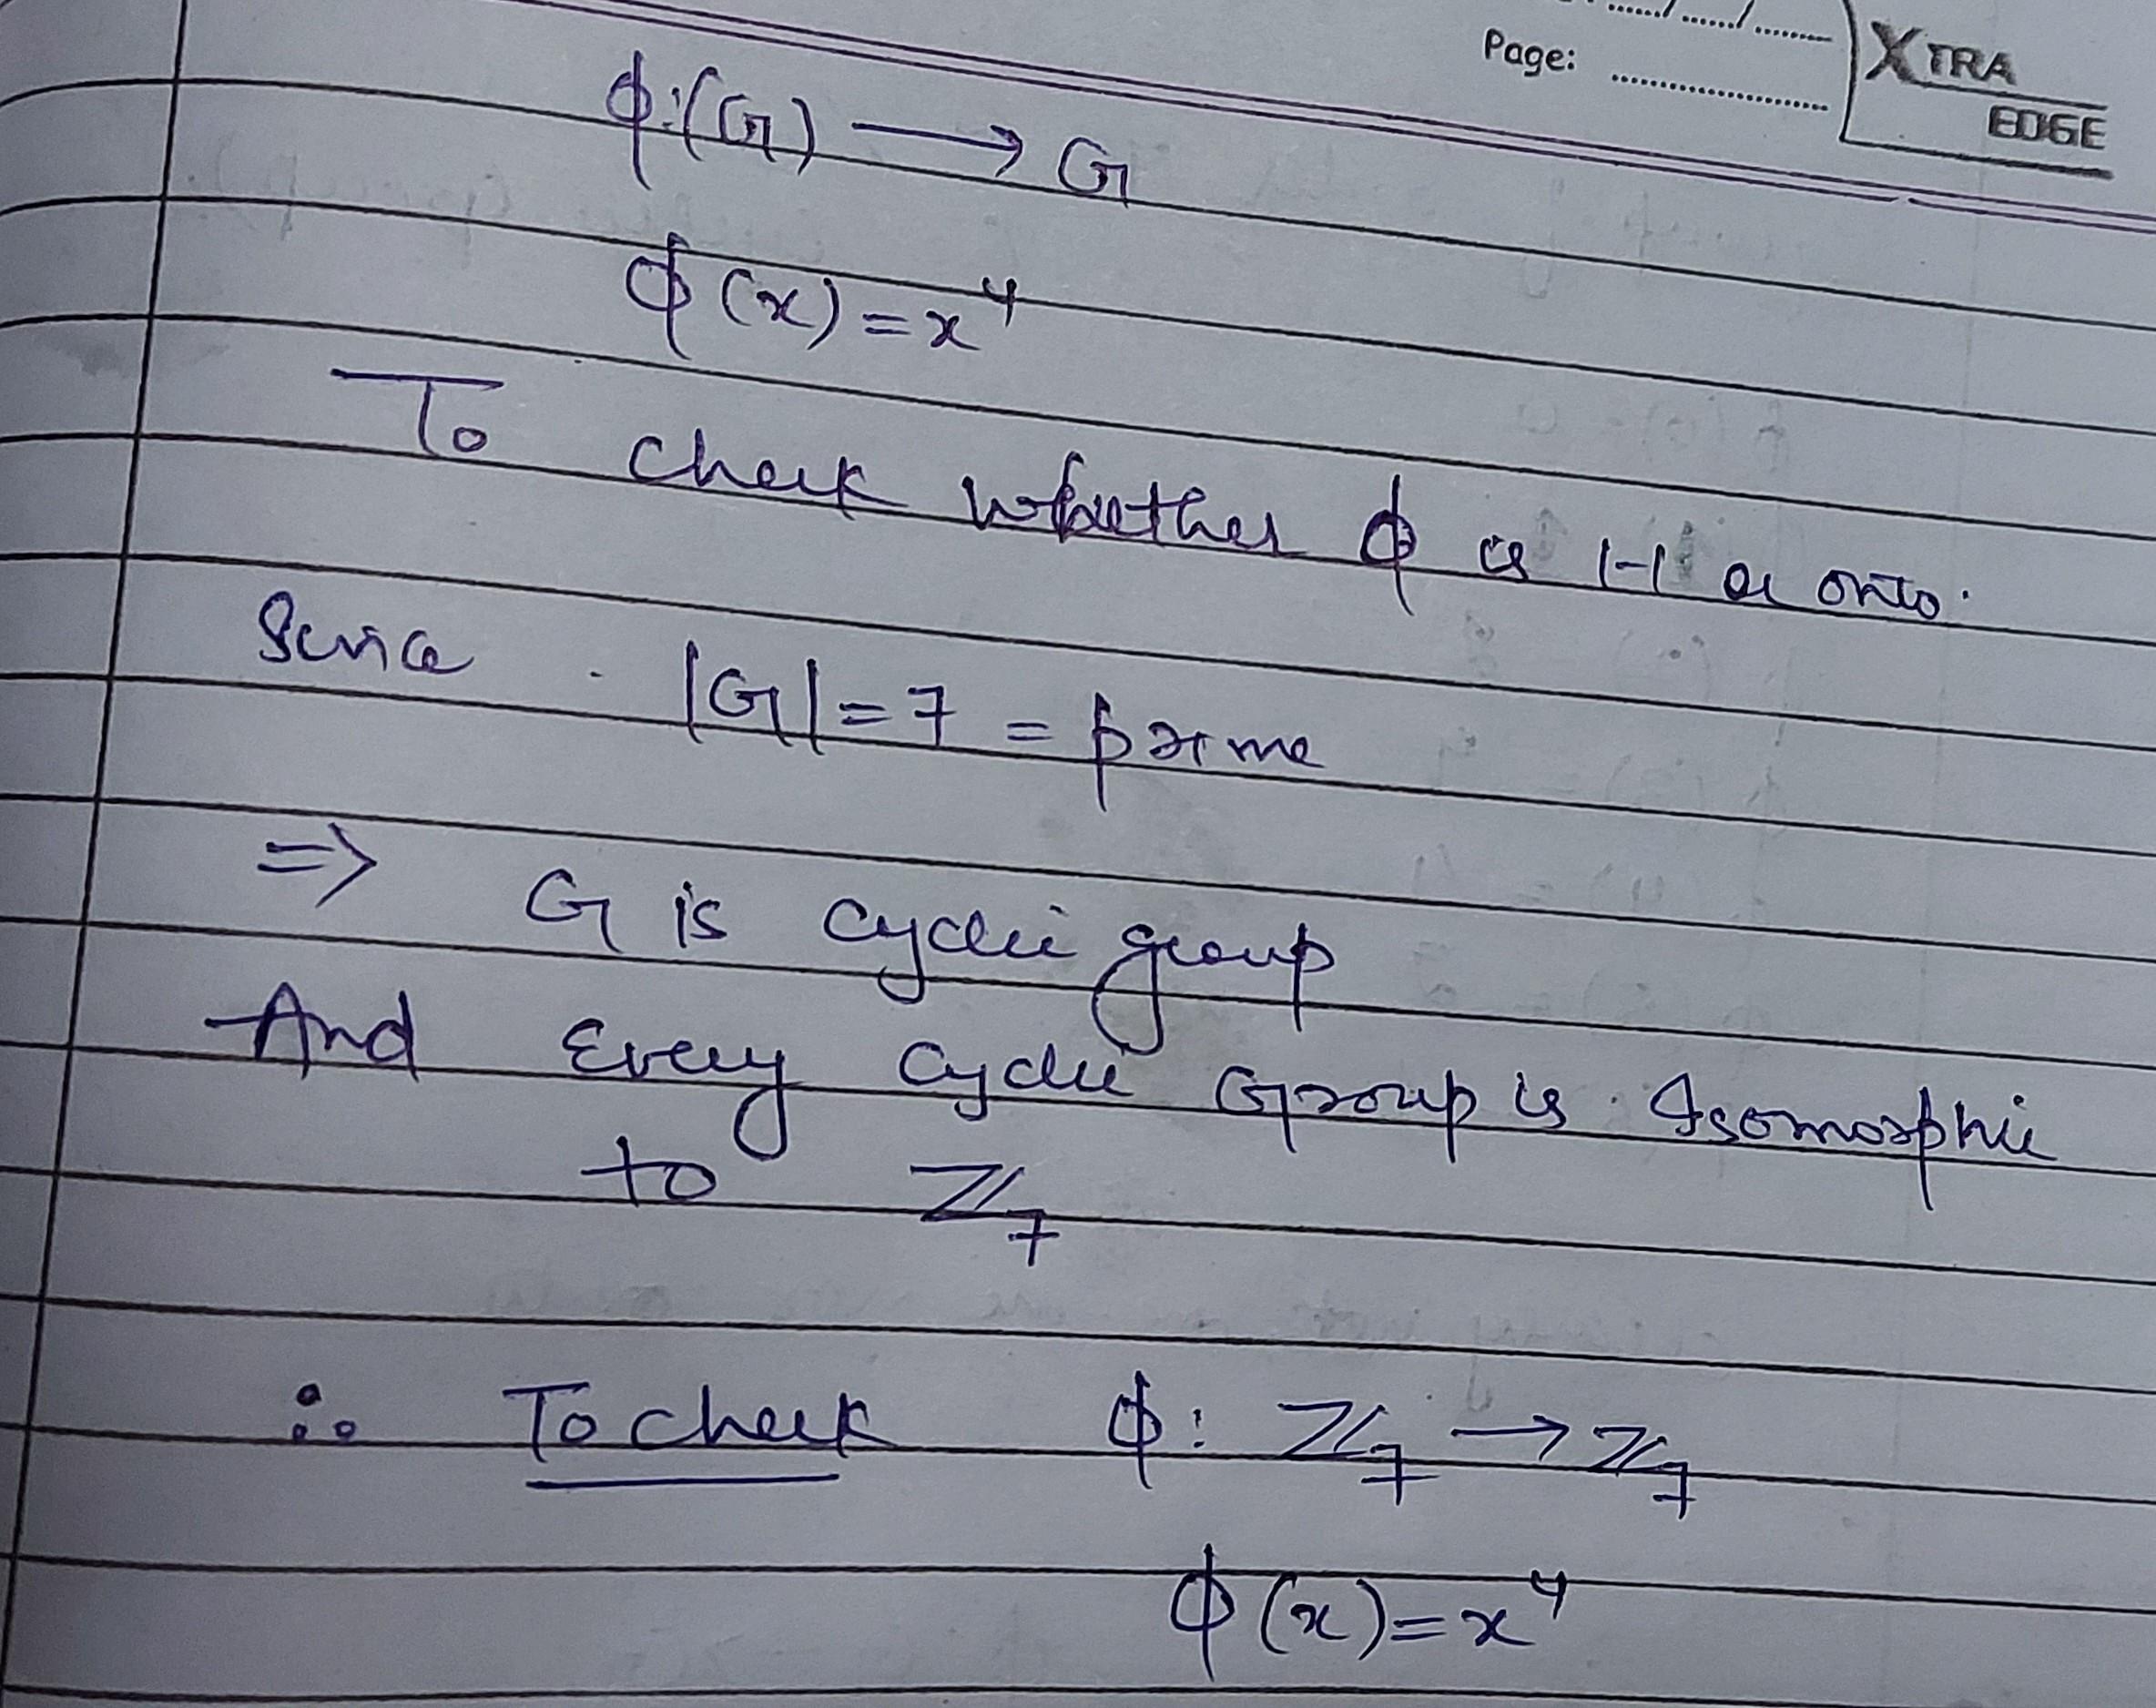 Page:
XTRA
EDGE
ϕ:(G) → G
ϕ(x) = x⁴
To check whether ϕ is 1-1 or onto.
Since |G| = 7 = prime
⇒ G is cyclic group
And Every cyclic Group is Isomorphic
to ℤ₇
∴ To check ϕ: ℤ₇ → ℤ₇
ϕ(x) = x⁴